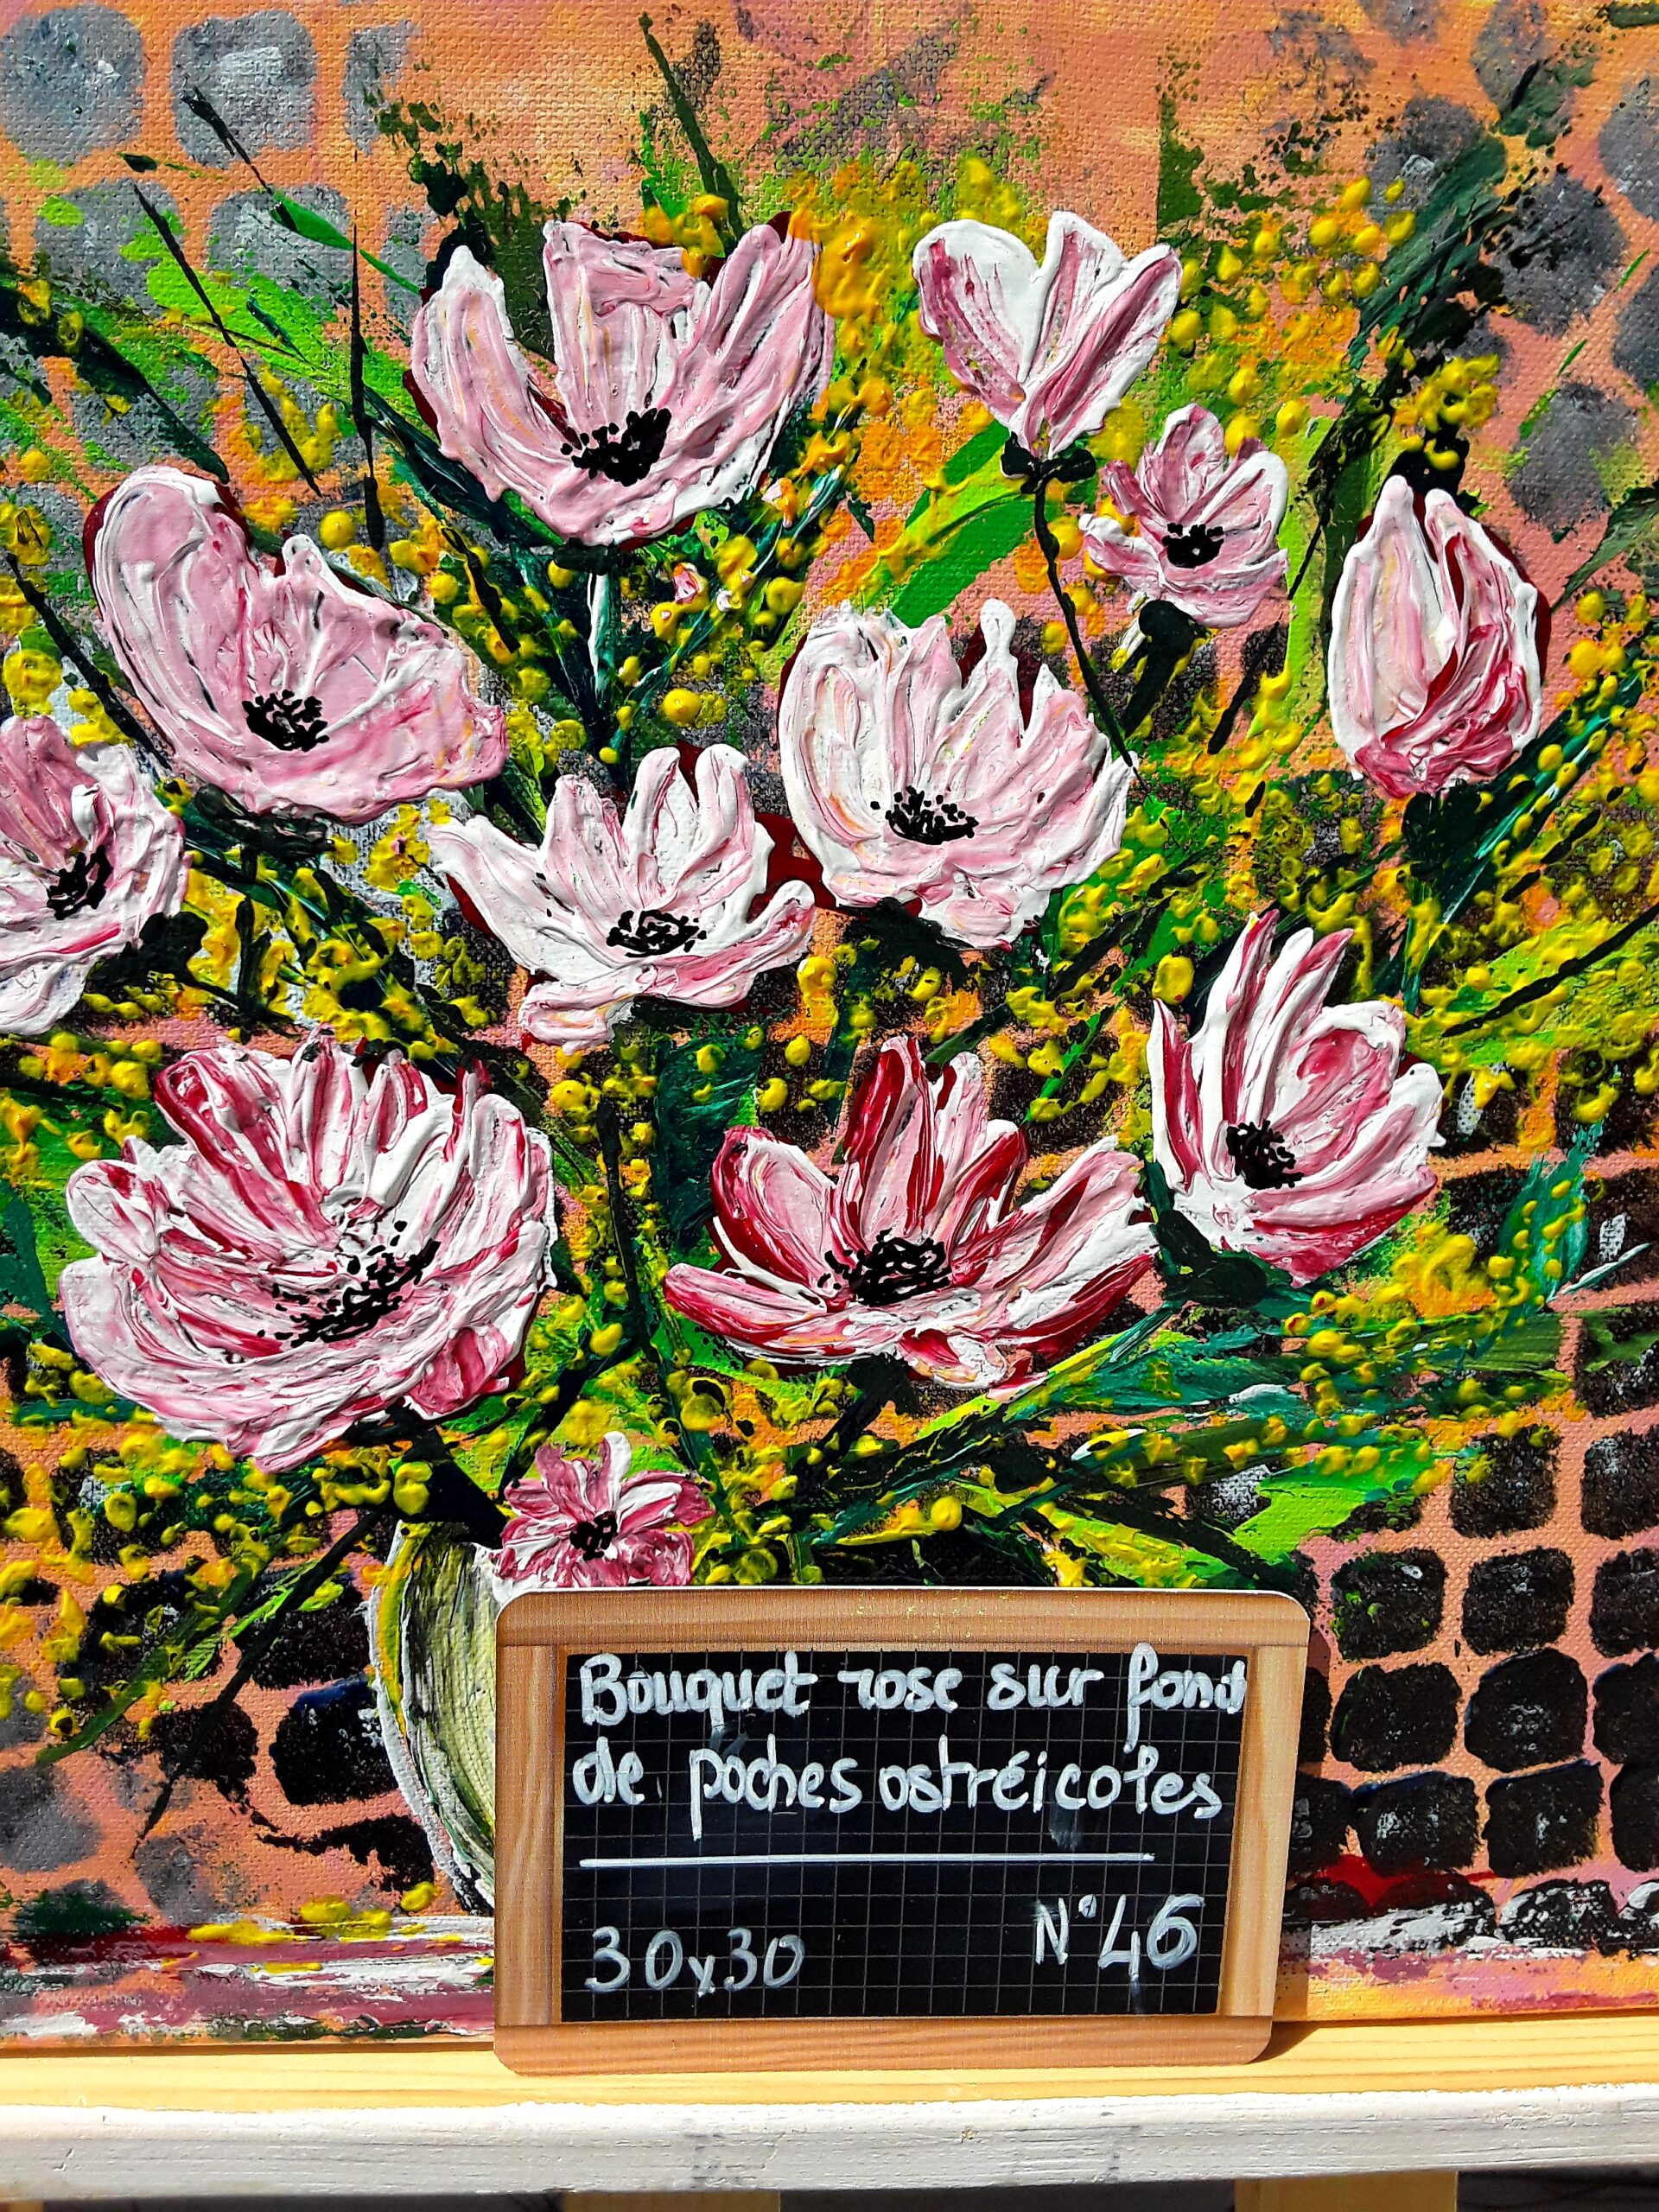 Bouquet rose sur fond
de poches ostréicoles
30x30
N°46